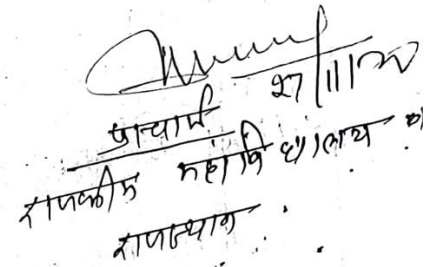 27/11/20
प्राचार्य
राजकीय महाविद्यालय
राजस्थान